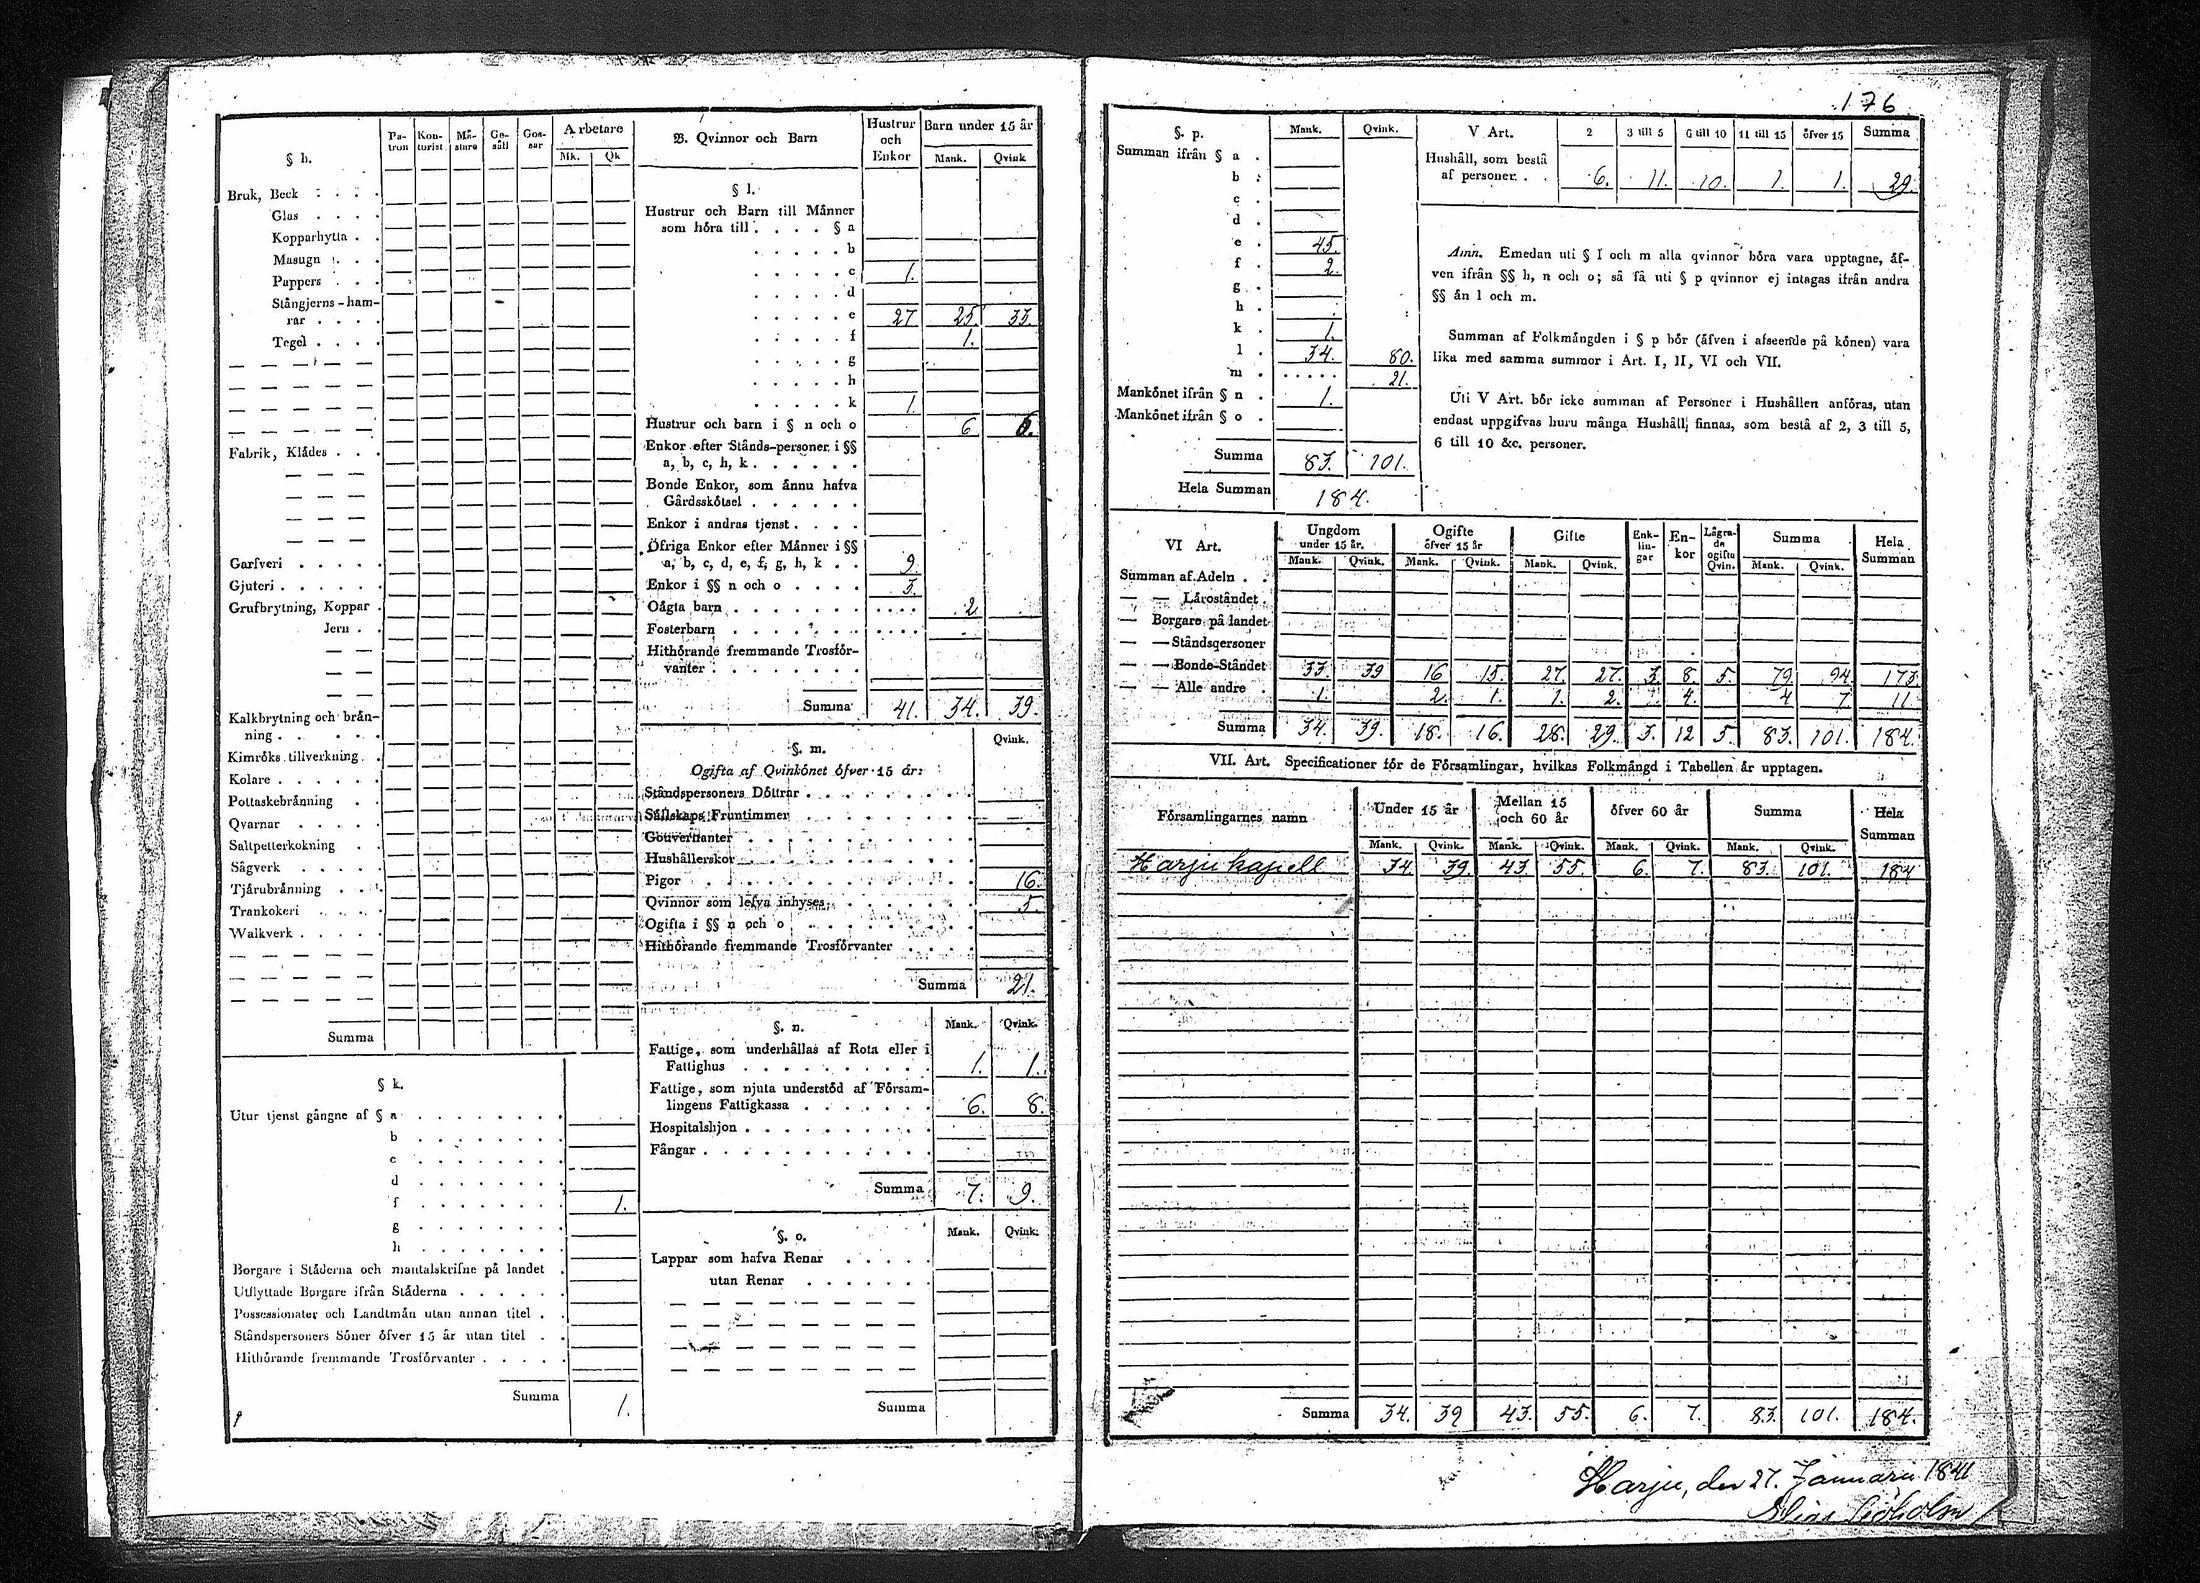 § h.
Pa-tron Kon-torist Mä-stare Ge-säll Gos-sar Arbetare
Mk. Qk
Bruk, Beck
Glas
Kopparhytta
Masugn
Pappers
Stångjerns-ham-
rar
Tegel
Fabrik, Klädes
Garfveri
Gjuteri
Grufbrytning, Koppar
Jern
Kalkbrytning och brån-
ning
Kimröks tillverkning
Kolare
Pottaskebränning
Qvarnar
Saltpetterkokning
Sågverk
Tjärubränning
Trankokeri
Walkverk
Summa
§ k.
Utur tjenst gångne af § a
b
c
d
f 1.
g
h
Borgare i Städerna och mantalskrifne på landet
Utflyttade Borgare ifrån Städerna
Possessionater och Landtmän utan annan titel
Ståndspersoners Söner öfver 15 år utan titel
Hithörande fremmande Trosförvanter
Summa 1.
B. Qvinnor och Barn Hustrur och Enkor Barn under 15 år
Mank. Qvink
§ l.
Hustrur och Barn till Männer
som höra till § a
b
c 1.
d
e 27 25 33.
f 1.
g
h
k 1.
Hustrur och barn i § n och o 6 6.
Enkor efter Stånds-personer i §§
a, b, c, h, k
Bonde Enkor, som ännu hafva
Gårdsskötsel
Enkor i andras tjenst
Öfriga Enkor efter Männer i §§
a, b, c, d, e, f, g, h, k 9.
Enkor i §§ n och o 3.
Oägta barn 2.
Fosterbarn
Hithörande fremmande Trosför-
vanter
Summa 41. 34. 39.
§. m. Qvink.
Ogifta af Qvinkönet öfver 15 år:
Ståndspersoners Döttrar
Sällskaps Fruntimmer
Gouvernanter
Hushållerskor
Pigor 16.
Qvinnor som lefva inhyses 5.
Ogifta i §§ n och o
Hithörande fremmande Trosförvanter
Summa 21.
§. n. Mank. Qvink.
Fattige, som underhållas af Rota eller i
Fattighus 1. 1.
Fattige, som njuta understöd af Försam-
lingens Fattigkassa 6. 8.
Hospitalshjon
Fångar
Summa 7. 9.
§. o. Mank. Qvink.
Lappar som hafva Renar
utan Renar
Summa
176
§. p. Mank. Qvink.
Summan ifrån § a
b
c
d
e 45.
f 2.
g
h
k 1.
l 34. 80.
m 21.
Mankönet ifrån § n 1.
Mankönet ifrån § o
Summa 83. 101.
Hela Summan 184.
V Art. 2 3 till 5 6 till 10 11 till 15 öfver 15 Summa
Hushåll, som bestå
af personer 6. 11. 10. 1. 1. 29.
Anm. Emedan uti § l och m alla qvinnor böra vara upptagne, äf-
ven ifrån §§ h, n och o; så få uti § p qvinnor ej intagas ifrån andra
§§ än l och m.
Summan af Folkmängden i § p bör (äfven i afseende på könen) vara
lika med samma summor i Art. I, II, VI och VII.
Uti V Art. bör icke summan af Personer i Hushållen anföras, utan
endast uppgifvas huru många Hushåll finnas, som bestå af 2, 3 till 5,
6 till 10 &c. personer.
VI Art. Ungdom under 15 år. Ogifte öfver 15 år Gifte Enk-lin-gar En-kor Lägra-de ogifta Qvin. Summa Hela Summan
Mank. Qvink. Mank. Qvink. Mank. Qvink. Mank. Qvink.
Summan af Adeln
— — Läroståndet
— Borgare på landet
— — Ståndspersoner
— — Bonde-Ståndet 33. 39 16 15. 27. 27. 3. 8. 5. 79. 94. 173.
— — Alle andre 1. 2. 1. 1. 2. 4. 4 7. 11.
Summa 34. 39. 18. 16. 28. 29. 3. 12 5. 83. 101. 184.
VII. Art. Specificationer för de Församlingar, hvilkas Folkmängd i Tabellen är upptagen.
Församlingarnes namn Under 15 år Mellan 15 och 60 år öfver 60 år Summa Hela Summan
Mank. Qvink. Mank. Qvink. Mank. Qvink. Mank. Qvink.
Harju kapell 34. 39. 43. 55. 6. 7. 83. 101. 184
Summa 34. 39 43. 55. 6. 7. 83. 101. 184.
Harju, den 27. Januarii 1841